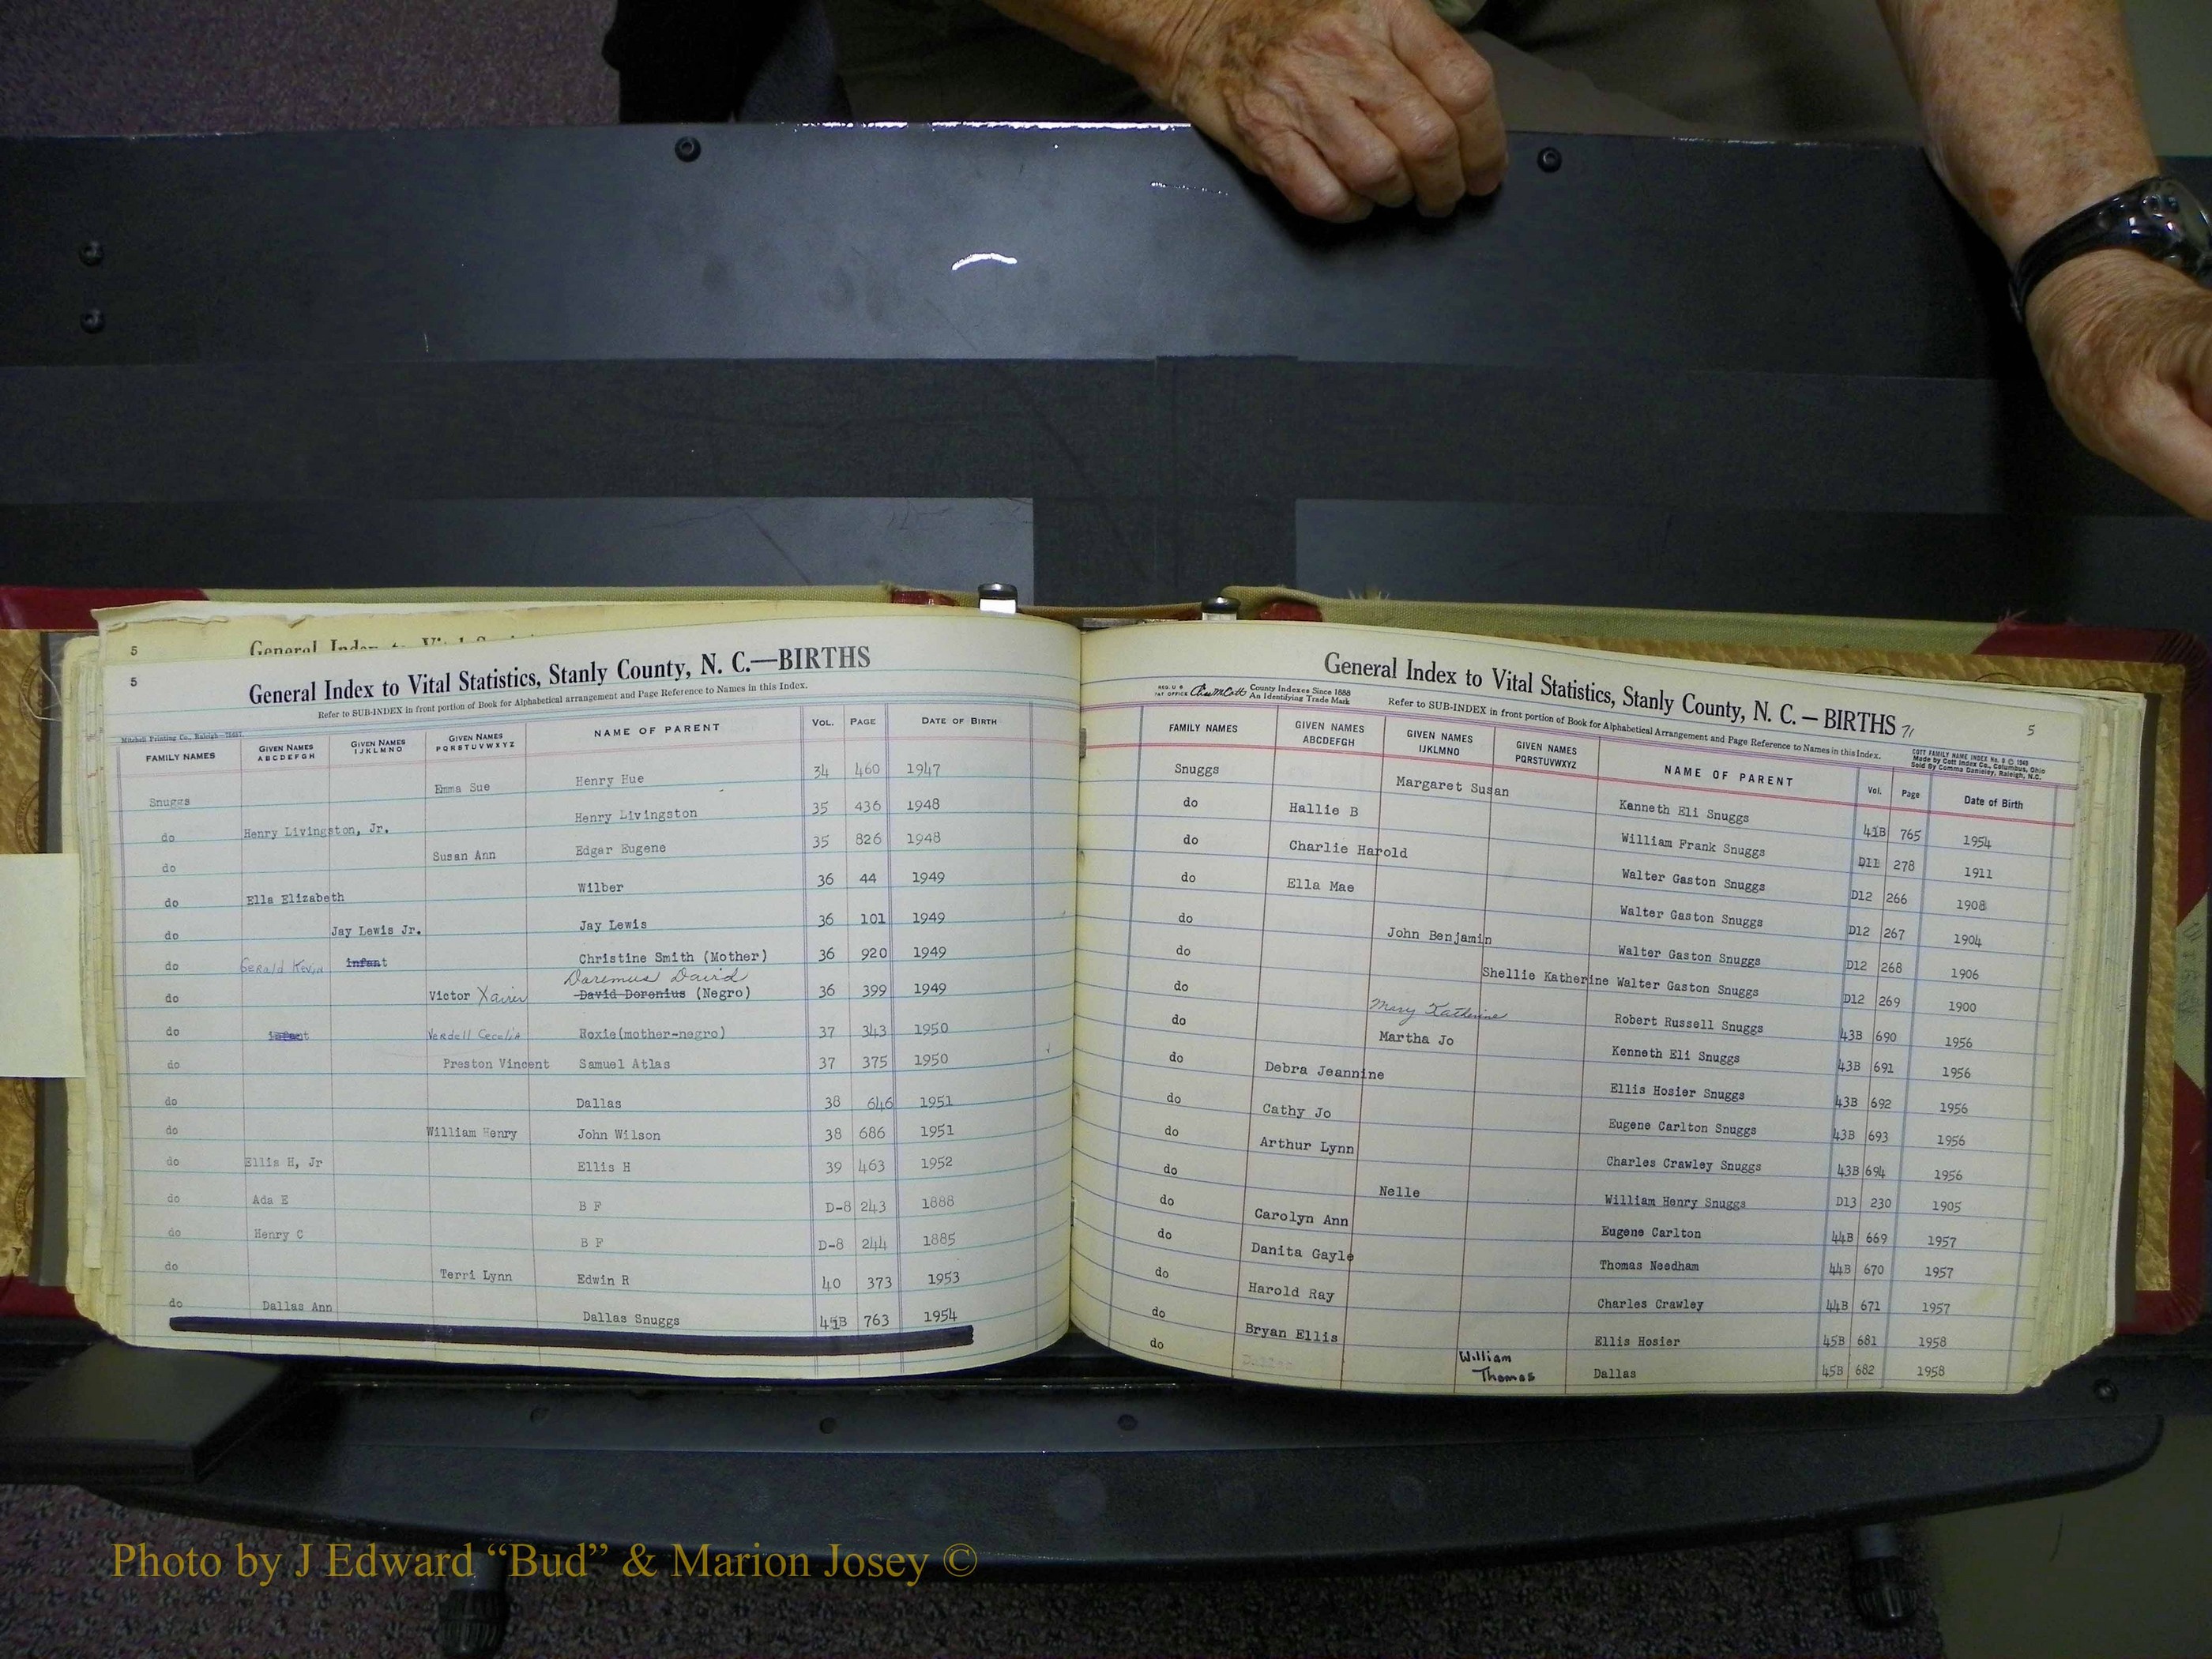 5
General Index to Vital Statistics
5
General Index to Vital Statistics, Stanly County, N. C.—BIRTHS
Refer to SUB-INDEX in front portion of Book for Alphabetical arrangement and Page Reference to Names in this Index.
Mitchell Printing Co., Raleigh
FAMILY NAMES GIVEN NAMES ABCDEFGH GIVEN NAMES IJKLMNO GIVEN NAMES PQRSTUVWXYZ NAME OF PARENT VOL. PAGE DATE OF BIRTH
Snuggs Emma Sue Henry Hue 34 460 1947
do Henry Livingston, Jr. Henry Livingston 35 436 1948
do Susan Ann Edgar Eugene 35 826 1948
do Ella Elizabeth Wilber 36 44 1949
do Jay Lewis Jr. Jay Lewis 36 101 1949
do Gerald Kevin infant Christine Smith (Mother) 36 920 1949
Doremus David
do Victor Xavier David Dorenius (Negro) 36 399 1949
do infant Verdell Cecelia Roxie(mother-negro) 37 343 1950
do Preston Vincent Samuel Atlas 37 375 1950
do Dallas 38 646 1951
do William Henry John Wilson 38 686 1951
do Ellis H, Jr Ellis H 39 463 1952
do Ada E B F D-8 243 1888
do Henry C B F D-8 244 1885
do Terri Lynn Edwin R 40 373 1953
do Dallas Ann Dallas Snuggs 41B 763 1954
General Index to Vital Statistics, Stanly County, N. C. — BIRTHS 71
5
REG. U S PAT OFFICE County Indexes Since 1888 An Identifying Trade Mark
Refer to SUB-INDEX in front portion of Book for Alphabetical Arrangement and Page Reference to Names in this Index.
COTT FAMILY NAME INDEX No. 5 © 1949
Made by Cott Index Co., Columbus, Ohio
Sold By Comma Danieley, Raleigh, N.C.
FAMILY NAMES GIVEN NAMES ABCDEFGH GIVEN NAMES IJKLMNO GIVEN NAMES PQRSTUVWXYZ NAME OF PARENT Vol. Page Date of Birth
Snuggs Margaret Susan Kenneth Eli Snuggs 41B 765 1954
do Hallie B William Frank Snuggs D11 278 1911
do Charlie Harold Walter Gaston Snuggs D12 266 1908
do Ella Mae Walter Gaston Snuggs D12 267 1904
do John Benjamin Walter Gaston Snuggs D12 268 1906
do Shellie Katherine Walter Gaston Snuggs D12 269 1900
do Mary Katherine Robert Russell Snuggs 43B 690 1956
do Martha Jo Kenneth Eli Snuggs 43B 691 1956
do Debra Jeannine Ellis Hosier Snuggs 43B 692 1956
do Cathy Jo Eugene Carlton Snuggs 43B 693 1956
do Arthur Lynn Charles Crawley Snuggs 43B 694 1956
do Nelle William Henry Snuggs D13 230 1905
do Carolyn Ann Eugene Carlton 44B 669 1957
do Danita Gayle Thomas Needham 44B 670 1957
do Harold Ray Charles Crawley 44B 671 1957
do Bryan Ellis Ellis Hosier 45B 681 1958
do William Thomas Dallas 45B 682 1958
Photo by J Edward “Bud” & Marion Josey ©